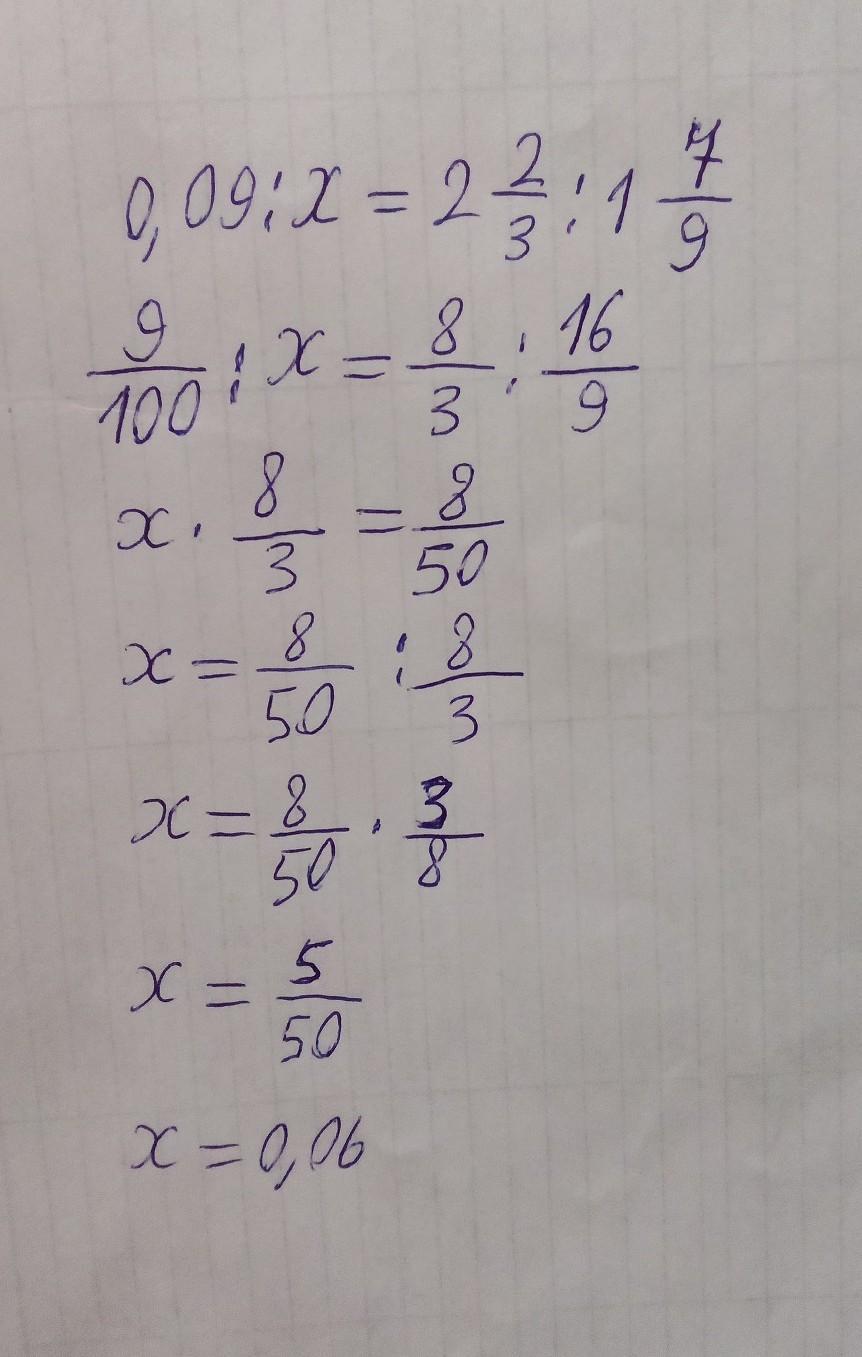 0,09:x = 2 2/3 : 1 7/9
9/100 : x = 8/3 : 16/9
x · 8/3 = 8/50
x = 8/50 : 8/3
x = 8/50 · 3/8
x = 5/50
x = 0,06